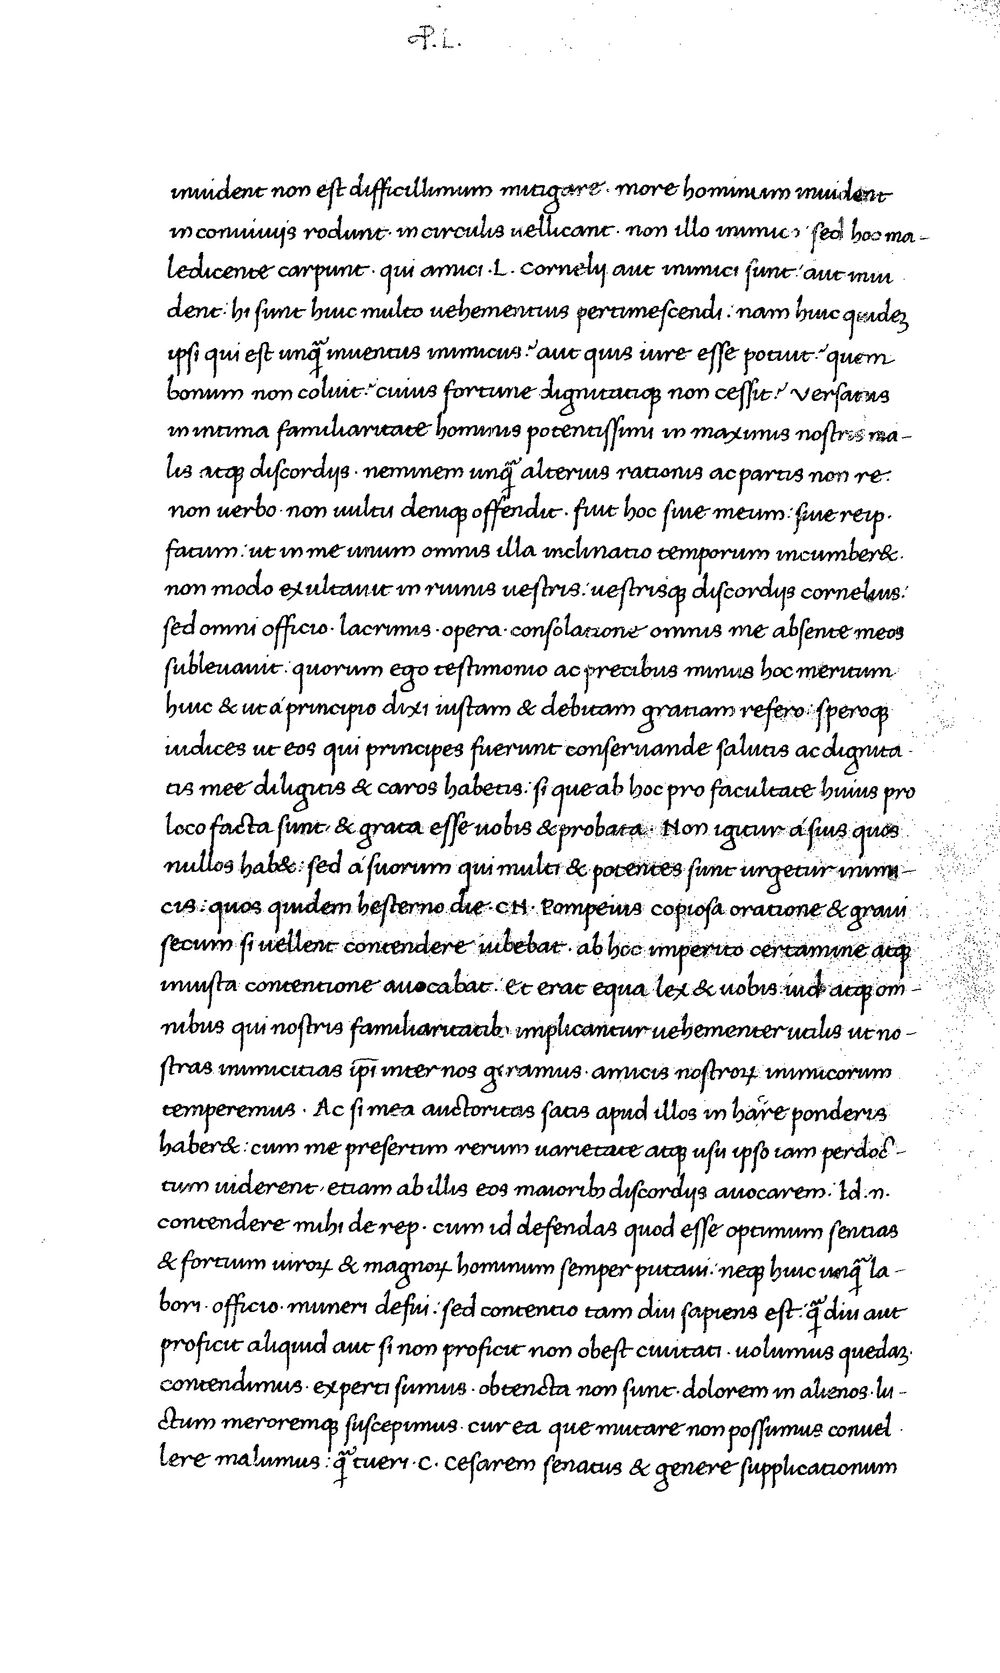 P. L.
inuident non est difficillimum mitigare · more hominum inuident
in conuiuijs rodunt · in circulis uellicant · non illo inimico sed hoc ma-
ledicente carpunt · qui amici · L · Cornelij aut inimici sunt: aut inui
dent: hi sunt huic multo uehementius pertimescendi: nam huic quideꝫ
ipsi qui est unq̃ inuentus inimicus? aut quis iure esse potuit? quem
bonum non coluit? cuius fortune dignitatiqꝫ non cessit? Versatus
in intima familiaritate hominis potentissimi in maximis nostris ma-
lis atqꝫ discordijs · neminem unq̃ alterius rationis ac partis non re ·
non uerbo · non uultu deniqꝫ offendit · fuit hoc siue meum: siue reip ·
fatum: ut in me unum omnis illa inclinatio temporum incumber& ·
non modo exultauit in ruinis uestris: uestrisqꝫ discordijs cornelius:
sed omni officio · lacrimis · opera · consolatione omnis me absente meos
subleuauit: quorum ego testimonio ac precibus minus hoc meritum
huic & ut á principio dixi iustam & debitam gratiam refero: speroqꝫ
iudices ut eos qui principes fuerunt conseruande salutis ac dignita ·
tis mee diligitis & caros habetis: si que ab hoc pro facultate huius pro
loco facta sunt, & grata esse uobis & probata · Non igitur á suis quos
nullos hab&: sed á suorum qui multi & potentes sunt urgetur inimi-
cis: quos quidem hesterno die · CN · Pompeius copiosa oratione & graui
secum si uellent contendere iubebat · ab hoc imperito certamine atqꝫ
iniusta contentione auocabat · Et erat equa lex & uobis iud atqꝫ om-
nibus qui nostris familiaritatibꝫ implicantur uehementer utilis ut no-
stras inimicitias ip̅i inter nos geramus · amicis nostroꝝ inimicorum
temperemus · Ac si mea auctoritas satis apud illos in hãre ponderis
haber&: cum me presertim rerum uarietate atqꝫ usu ipso iam perdoc-
tum uiderent, etiam ab illis eos maioribꝫ discordijs auocarem · Id · n ·
contendere mihi de rep · cum id defendas quod esse optimum sentias
& fortium uiroꝝ & magnoꝝ hominum semper putaui: neqꝫ huic unq̃ la-
bori · officio · muneri defui: sed contentio tam diu sapiens est: q̃ diu aut
proficit aliquid aut si non proficit non obest ciuitati · uolumus quedaꝫ ·
contendimus · experti sumus · obtencta non sunt · dolorem in alienos · lu-
ctum meroremqꝫ suscepimus · cur ea que mutare non possumus conuel ·
lere malumus: q̃ tueri · C · Cesarem senatus & genere supplicationum